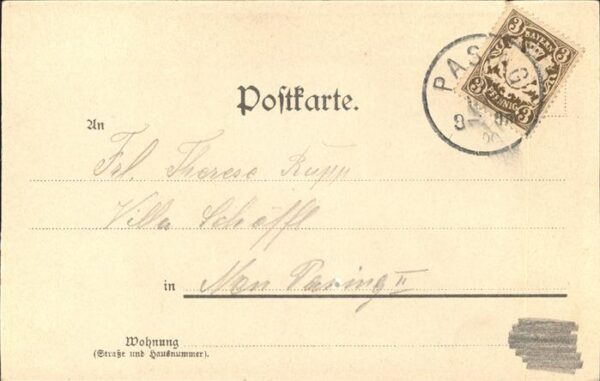 3 BAYERN 3
3 PFENNIG 3
PASING
Postkarte.
An
Frl. Therese Rupp
Villa Schöffl
in Neu Pasing II
Wohnung
(Straße und Hausnummer).